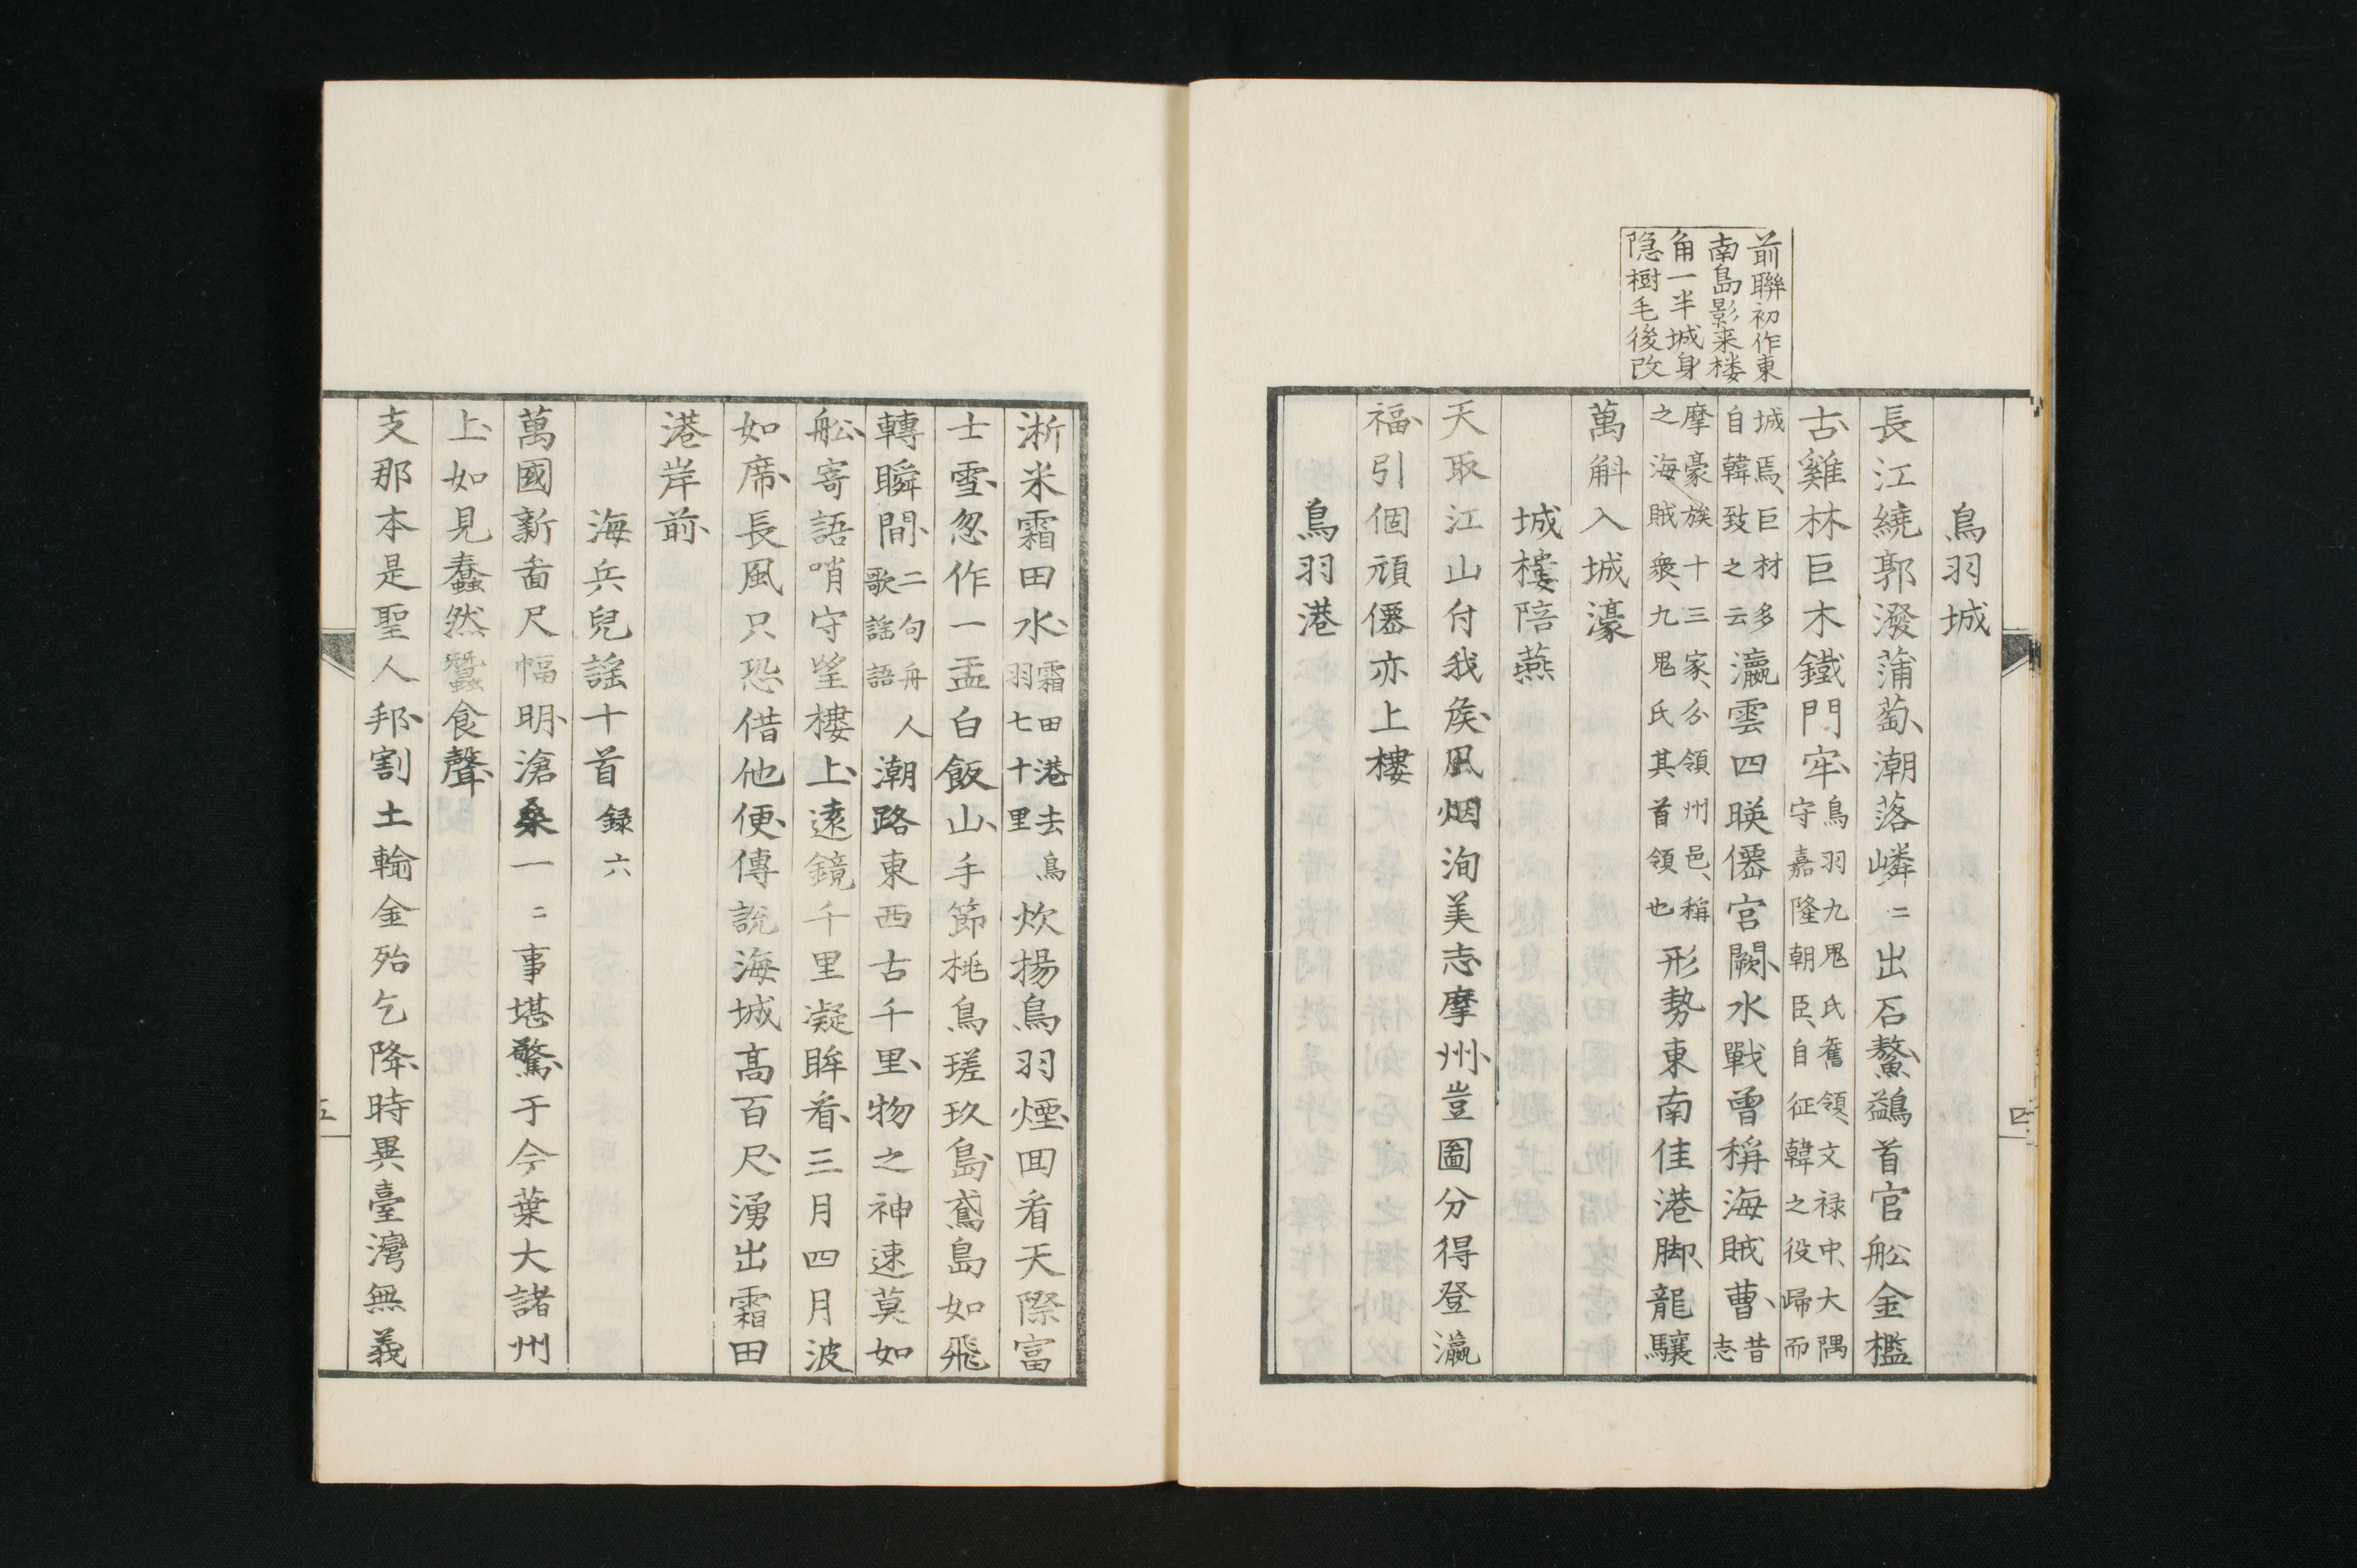 前聯初作東
南島影来楼
角一半城身
隠樹毛後改
鳥羽城
長江繞郭潑蒲萄、潮落嶙々出石鰲、鷁首官舩金檻
古、雞林巨木鐵門牢、鳥羽九鬼氏舊領、文禄中、大隅
守嘉隆朝臣、自征韓之役歸而
城焉、巨材多
自韓致之云瀛雲四暎僊宮闕、水戰曾稱海賊曹、昔
志
摩豪族十三家、分領州邑、稱
之海賊衆、九鬼氏其首領也形勢東南佳港脚、龍驤
萬斛入城濠
城樓陪燕
天取江山付我矦、風烟洵美志摩州、豈圖分得登瀛
福、引個頑僊亦上樓
鳥羽港
淅米霜田水、霜田港去鳥
羽七十里炊揚鳥羽煙、囬看天際富
士雪、忽作一盂白飯山、手節桃鳥瑳玖島、鳶島如飛
轉瞬間、二句舟人
歌謡語潮路東西古千里、物之神速莫如
舩、寄語哨守望樓上、遠鏡千里凝眸看、三月四月波
如席、長風只恐借他便、傳説海城高百尺、湧出霜田
港岸前、
海兵兒謡十首 録六
萬國新啚尺幅明、滄桑一々事堪驚、于今葉大諸州
上、如見蠢然蠶食聲、
支那本是聖人邦、割土輸金殆乞降、時異臺灣無義